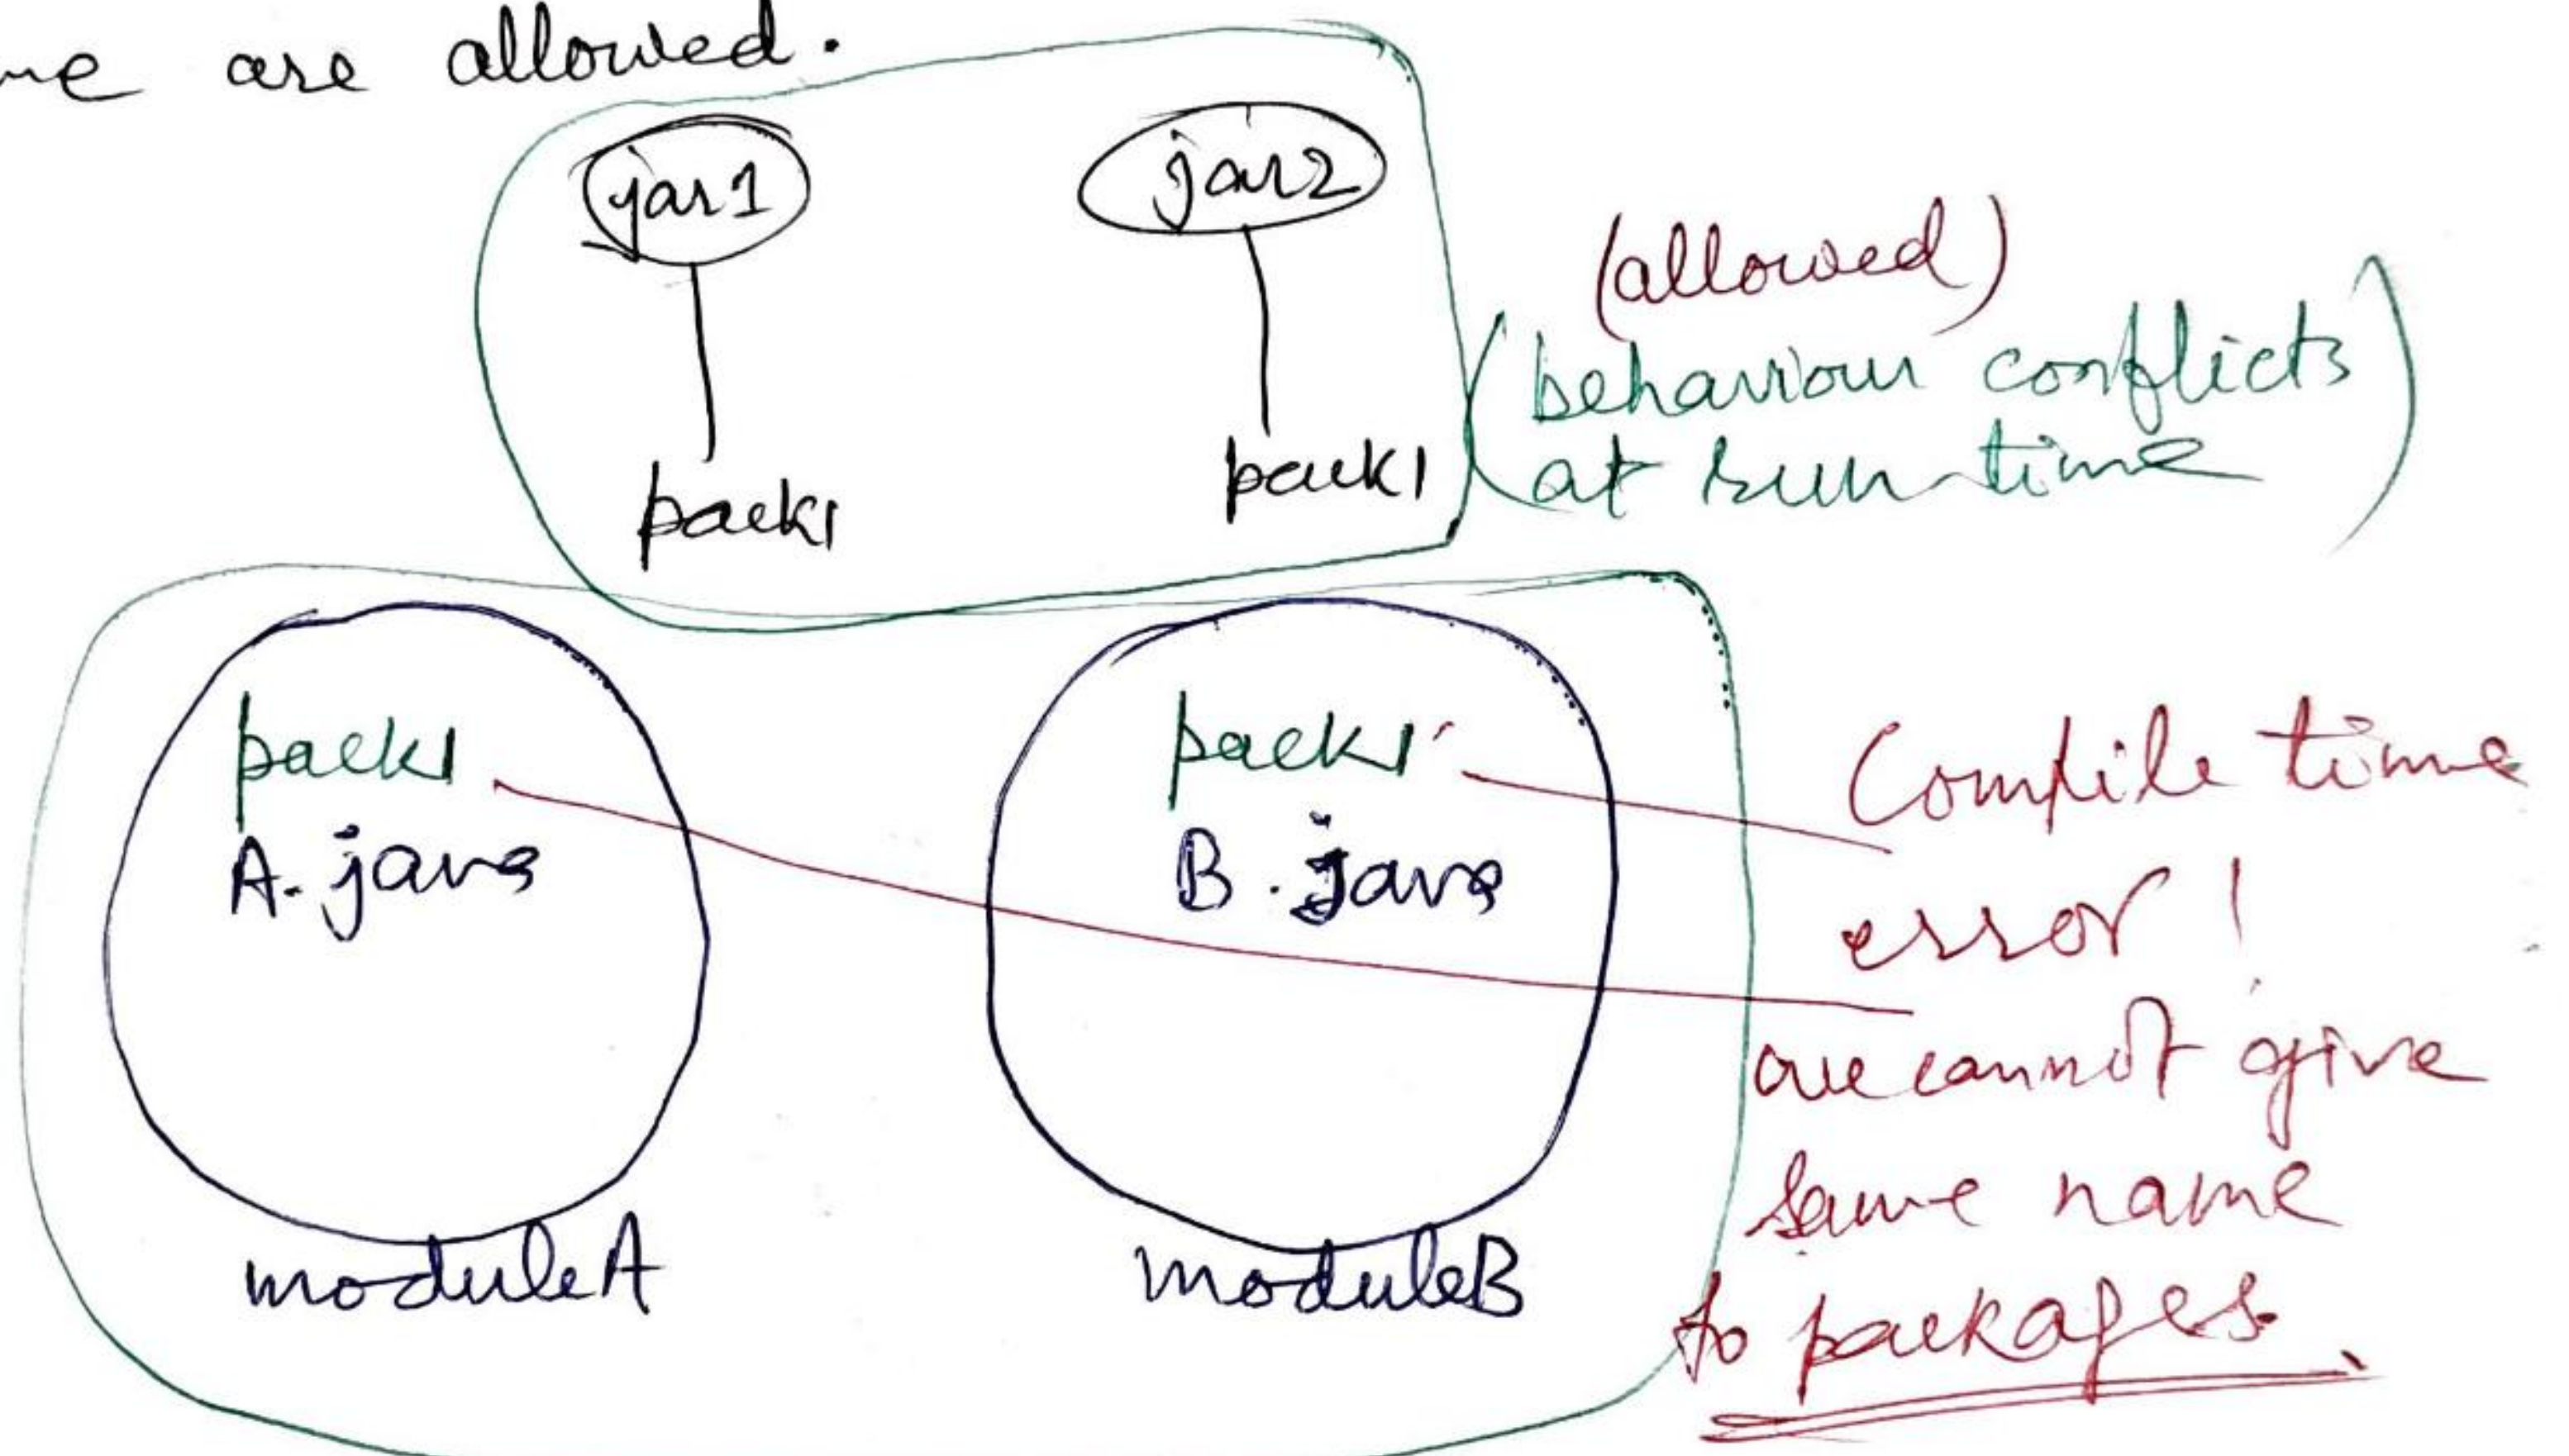 me are allowed.
jar1
jar2
pack1
pack1
(allowed)
(behaviour conflicts
at run time)
pack1
A.java
moduleA
pack1
B.java
moduleB
Compile time
error!
we cannot give
same name
to packages.